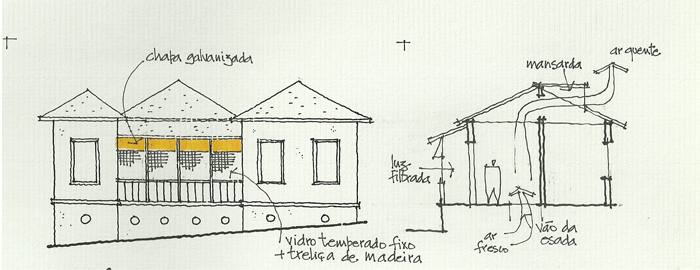 chapa galvanizada
vidro temperado fixo
+ treliça de madeira
mansarda
ar quente
luz
filtrada
ar
fresco
vão da
escada